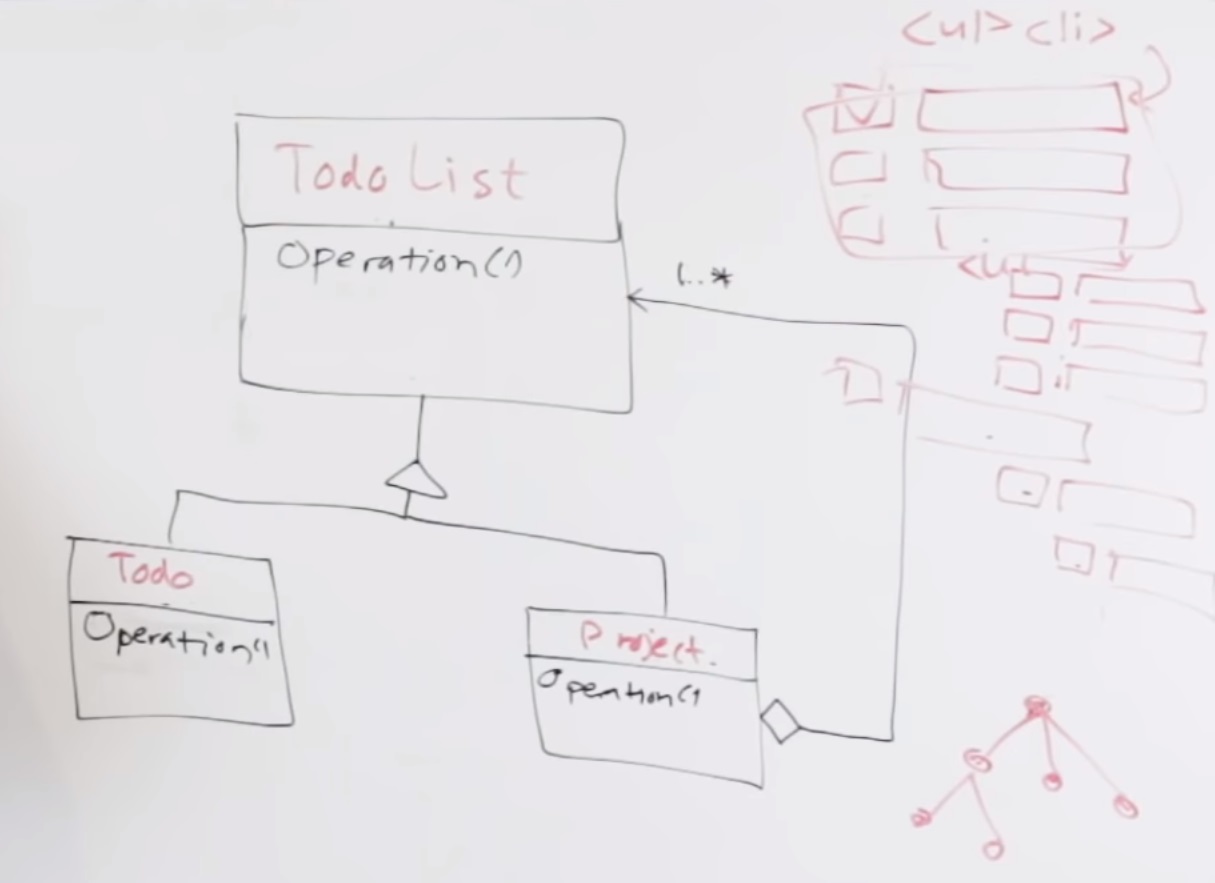 <ul> <li>
Todo List
Operation()
1..*
<ul
Todo
Operation()
Project.
Operation()